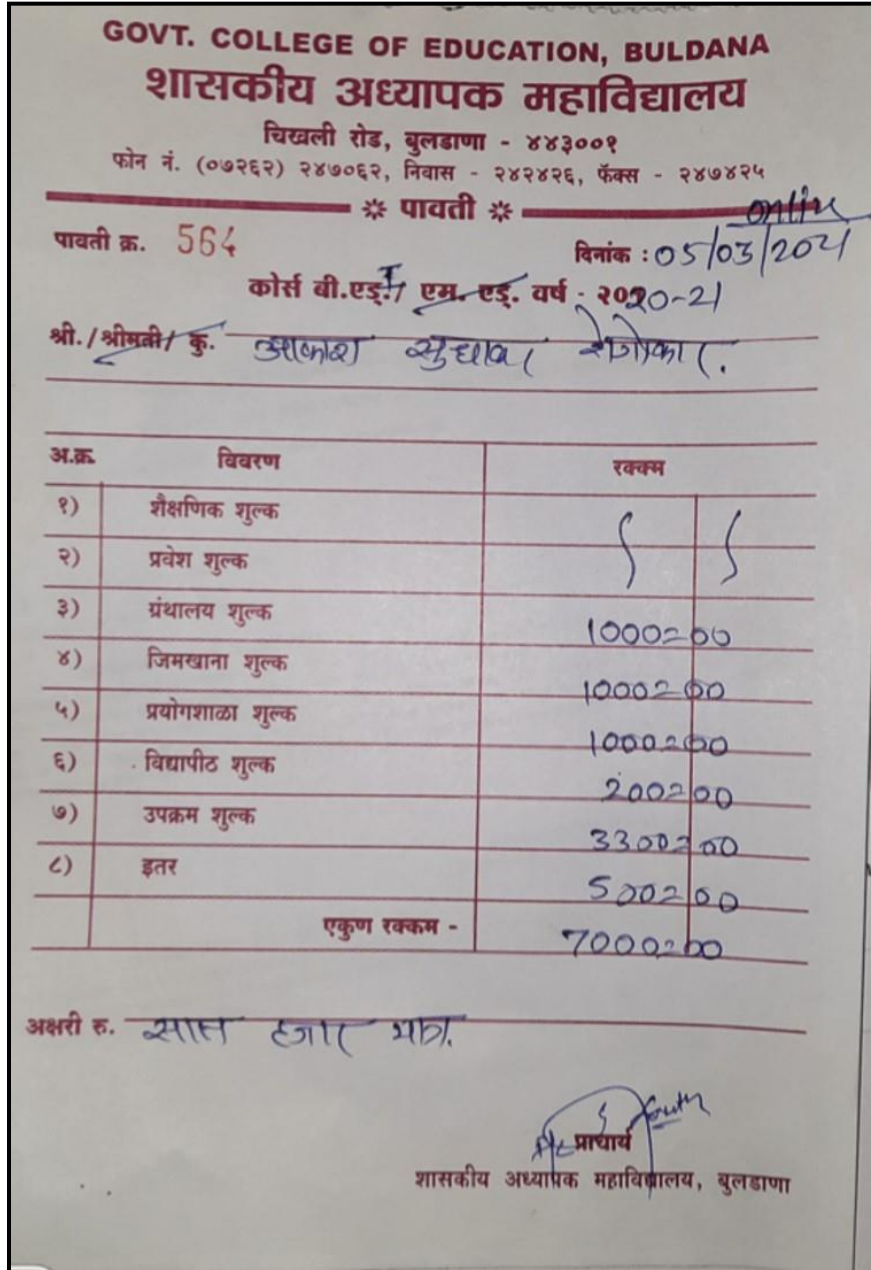 GOVT. COLLEGE OF EDUCATION, BULDANA
शासकीय अध्यापक महाविद्यालय
चिखली रोड, बुलडाणा - ४४३००१
फोन नं. (०७२६२) २४७०६२, निवास - २४२४२६, फॅक्स - २४७४२५
पावती
online
पावती क्र. 564
दिनांक : 05/03/2021
कोर्स बी.एड्. I / एम. एड्. वर्ष - २०20-21
श्री./श्रीमती/ कु. आकाश सुधाकर
अ.क्र. विवरण रक्कम
१) शैक्षणिक शुल्क
२) प्रवेश शुल्क
३) ग्रंथालय शुल्क 1000=00
४) जिमखाना शुल्क 1000=00
५) प्रयोगशाळा शुल्क 1000=00
६) विद्यापीठ शुल्क 200=00
७) उपक्रम शुल्क 3300=00
८) इतर 500=00
एकुण रक्कम - 7000=00
अक्षरी रु. सात हजार मात्र.
प्राचार्य
शासकीय अध्यापक महाविद्यालय, बुलडाणा